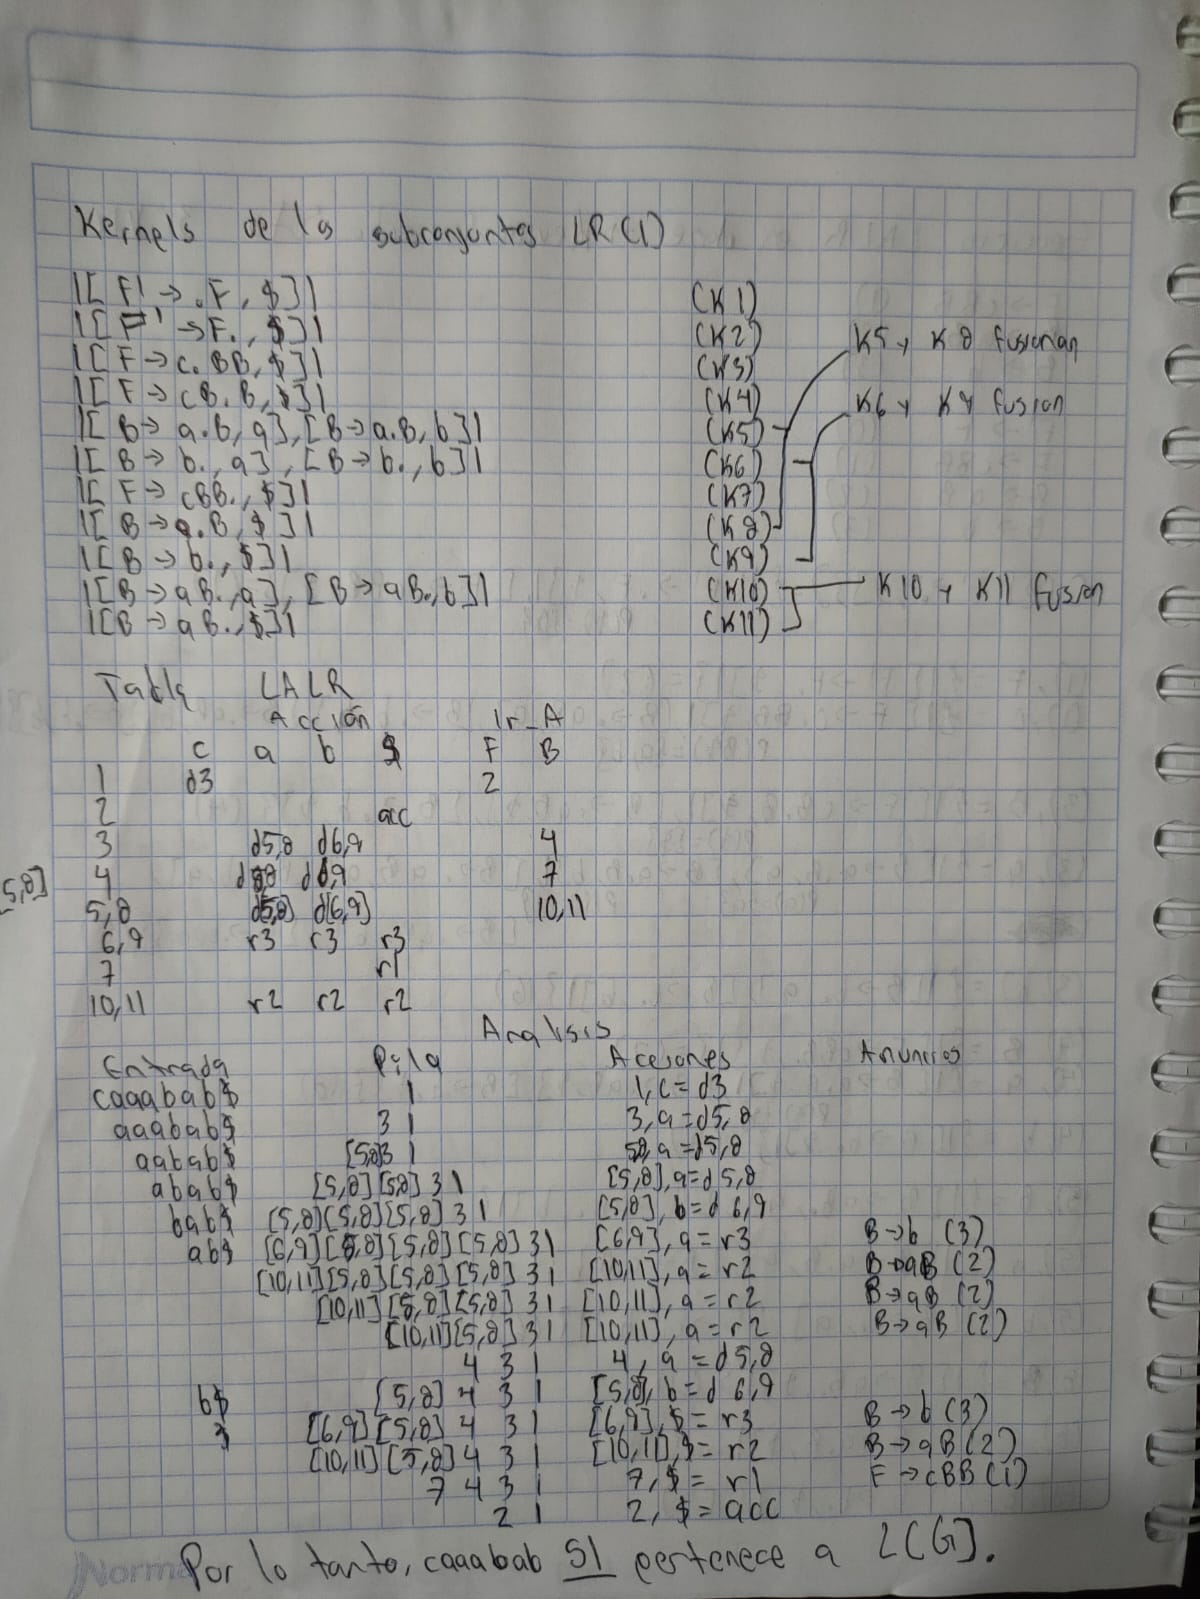 Kernels de los subconjuntos LR(1)
|[F' → .F, $]| (K1)
|[F' → F., $]| (K2) K5 y K8 fusionan
|[F → c.BB, $]| (K3)
|[F → cB.B, $]| (K4) K6 y K9 fusion
|[B → a.B, a], [B → a.B, b]| (K5)
|[B → b., a], [B → b., b]| (K6)
|[F → cBB., $]| (K7)
|[B → a.B, $]| (K8)
|[B → b., $]| (K9)
|[B → aB., a], [B → aB., b]| (K10) K10 y K11 fusion
|[B → aB., $]| (K11)
Tabla LALR
Acción Ir_A
c a b $ F B
1 d3 2
2 acc
3 d5,8 d6,9 4
4 d5,8 d6,9 7
[5,8]
5,8 d[5,8] d[6,9] 10,11
6,9 r3 r3 r3
7 r1
10,11 r2 r2 r2
Analisis
Entrada Pila Acciones Anuncios
caaabab$ 1 1,c=d3
aaabab$ 3 1 3,a=d5,8
aabab$ [5,8]3 1 5,8,a=d5,8
abab$ [5,8][5,8] 3 1 [5,8],a=d5,8
bab$ [5,8][5,8][5,8] 3 1 [5,8], b=d 6,9
ab$ [6,9][5,8][5,8][5,8] 3 1 [6,9], a=r3 B→b (3)
[10,11][5,8][5,8][5,8] 3 1 [10,11], a=r2 B→aB (2)
[10,11][5,8][5,8] 3 1 [10,11], a=r2 B→aB (2)
[10,11][5,8] 3 1 [10,11], a=r2 B→aB (2)
4 3 1 4, a=d5,8
b$ [5,8] 4 3 1 [5,8], b=d 6,9
$ [6,9][5,8] 4 3 1 [6,9], $=r3 B→b (3)
[10,11][5,8] 4 3 1 [10,11], $=r2 B→aB (2)
7 4 3 1 7, $=r1 F→cBB (1)
2 1 2, $=acc
Por lo tanto, caaabab SI pertenece a L[G].
Norma